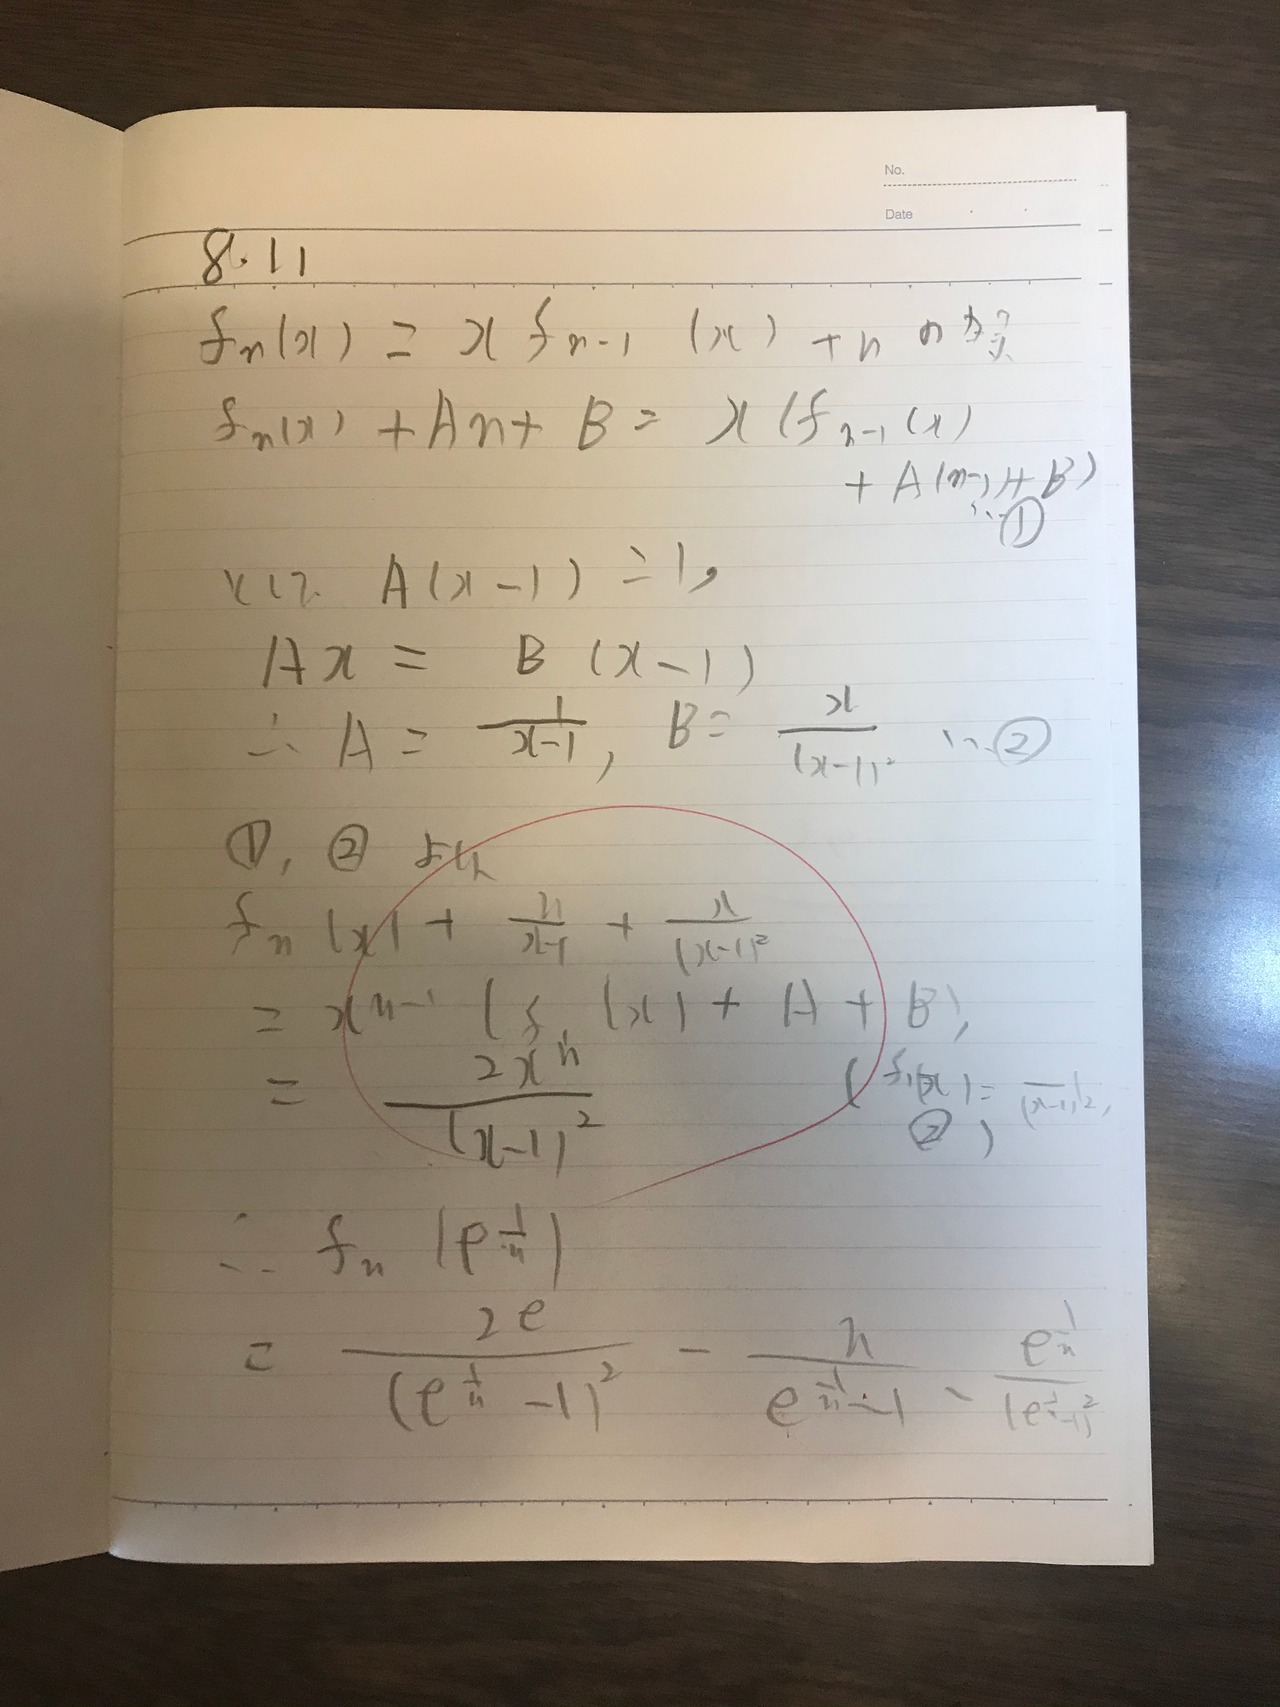 No.
Date
8.11
fn(x) = x fn-1 (x) + n の
fn(x) + An + B = x (fn-1 (x)
+ A(n-1)+B)
…①
として A(x-1) = 1,
Ax = B (x-1)
∴ A = 1/(x-1), B = x/(x-1)² …②
①, ② より
fn (x) + n/(x-1) + x/(x-1)²
= x^(n-1) (f1 (x) + A + B),
= 2x^n/(x-1)²
(f1(x) = /(x-1)²,
②)
∴ fn (e^(1/n))
= 2e/(e^(1/n) -1)² - n/(e^(1/n) -1) - e^(1/n)/(e^(1/n)-1)²